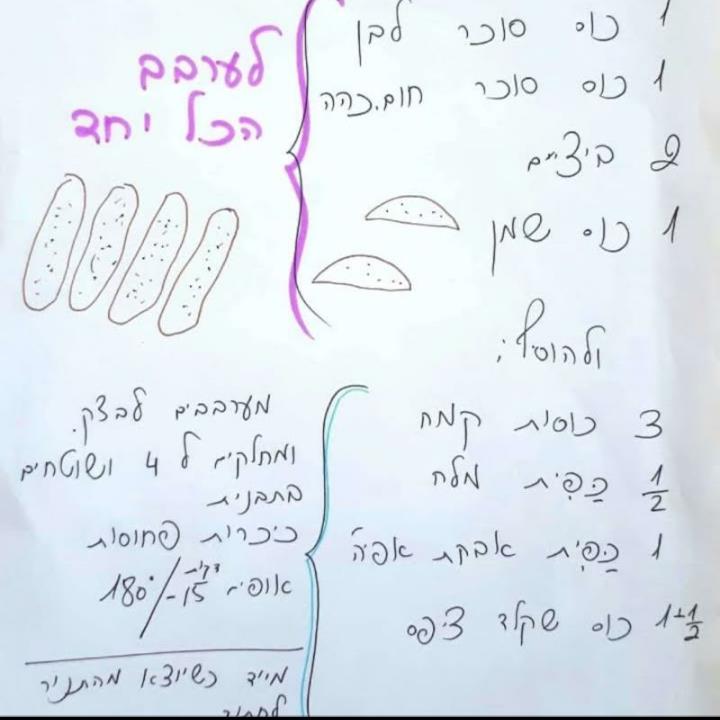 1 כוס סוכר לבן
1 כוס סוכר חום.כהה
2 ביצים
1 כוס שמן
לערבב
הכל יחד
ולהוסיף:
3 כוסות קמח
1/2 כַּפִּית מלח
1 כַּפִּית אבקת אפיה
1+1/2 כוס שקלד ציפס
מערבבים לבצק.
ומחלקים ל 4 ושוטחים
בתבנית
כיכרות פחוסות
אופים 15- דקות/180°
מייד כשיוצא מהתניר
לחתוך